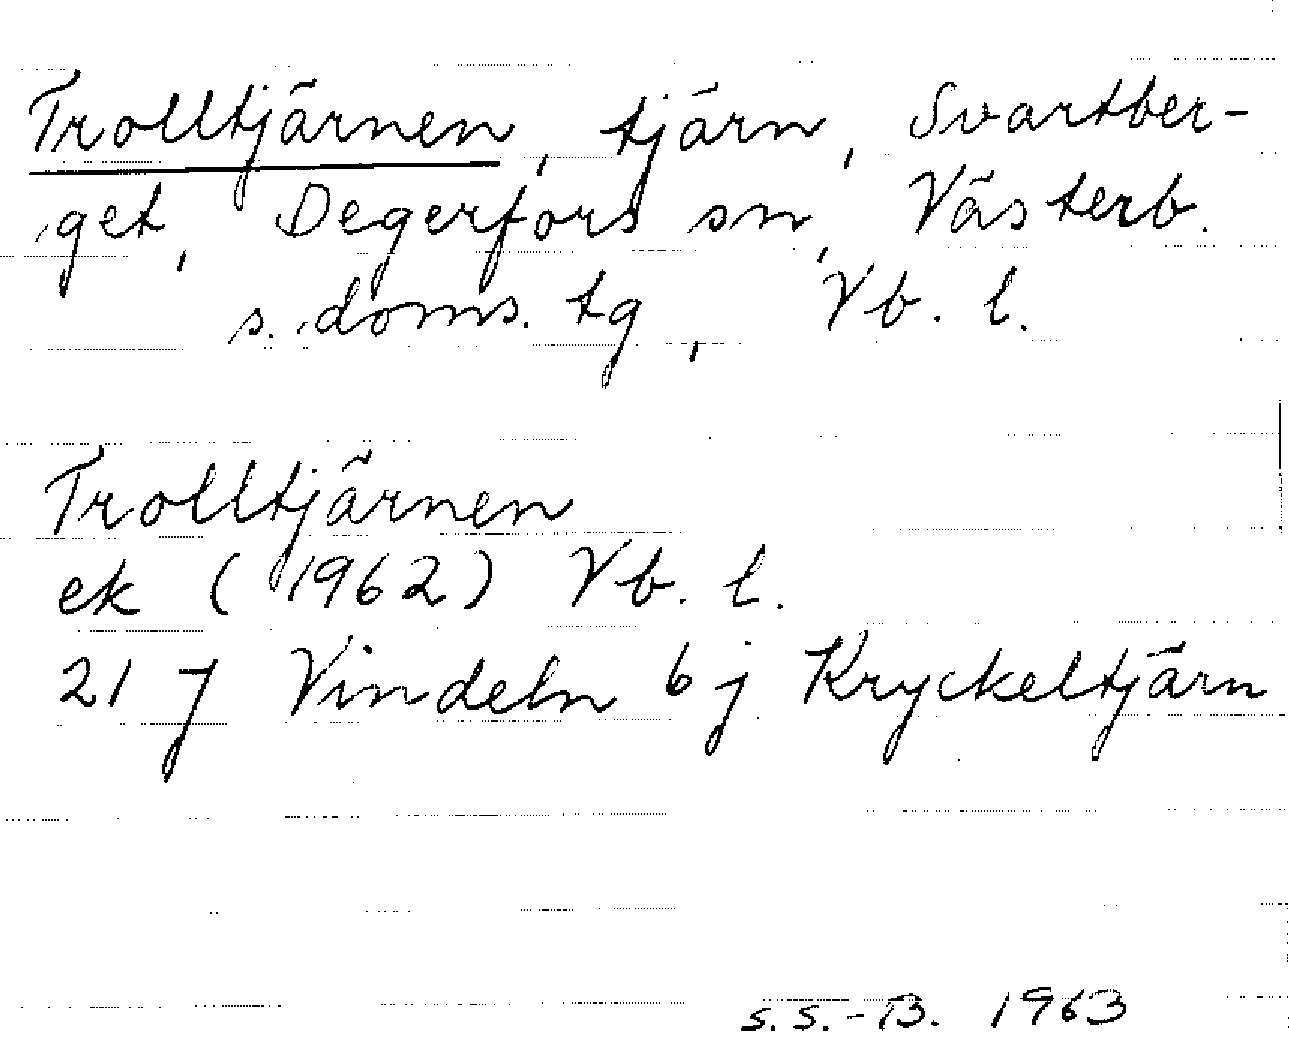 Trolltjärnen, tjärn, Svartber-
get, Degerfors sn, Västerb.
s. doms. tg, Vb. l.
Trolltjärnen
ek (1962) Vb. l.
21 J Vindeln 6 j Kryckeltjärn
S. S.-B. 1963